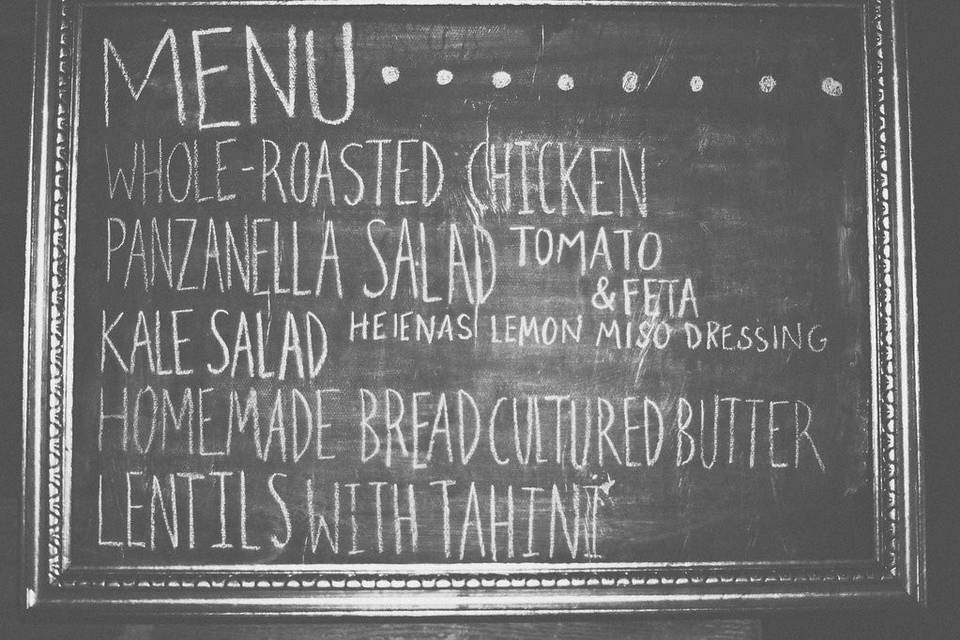 MENU ........
WHOLE-ROASTED CHICKEN
PANZANELLA SALAD TOMATO
& FETA
KALE SALAD HElENAS LEMON MISO DRESSING
HOMEMADE BREAD CULTURED BUTTER
LENTILS WITH TAHINI